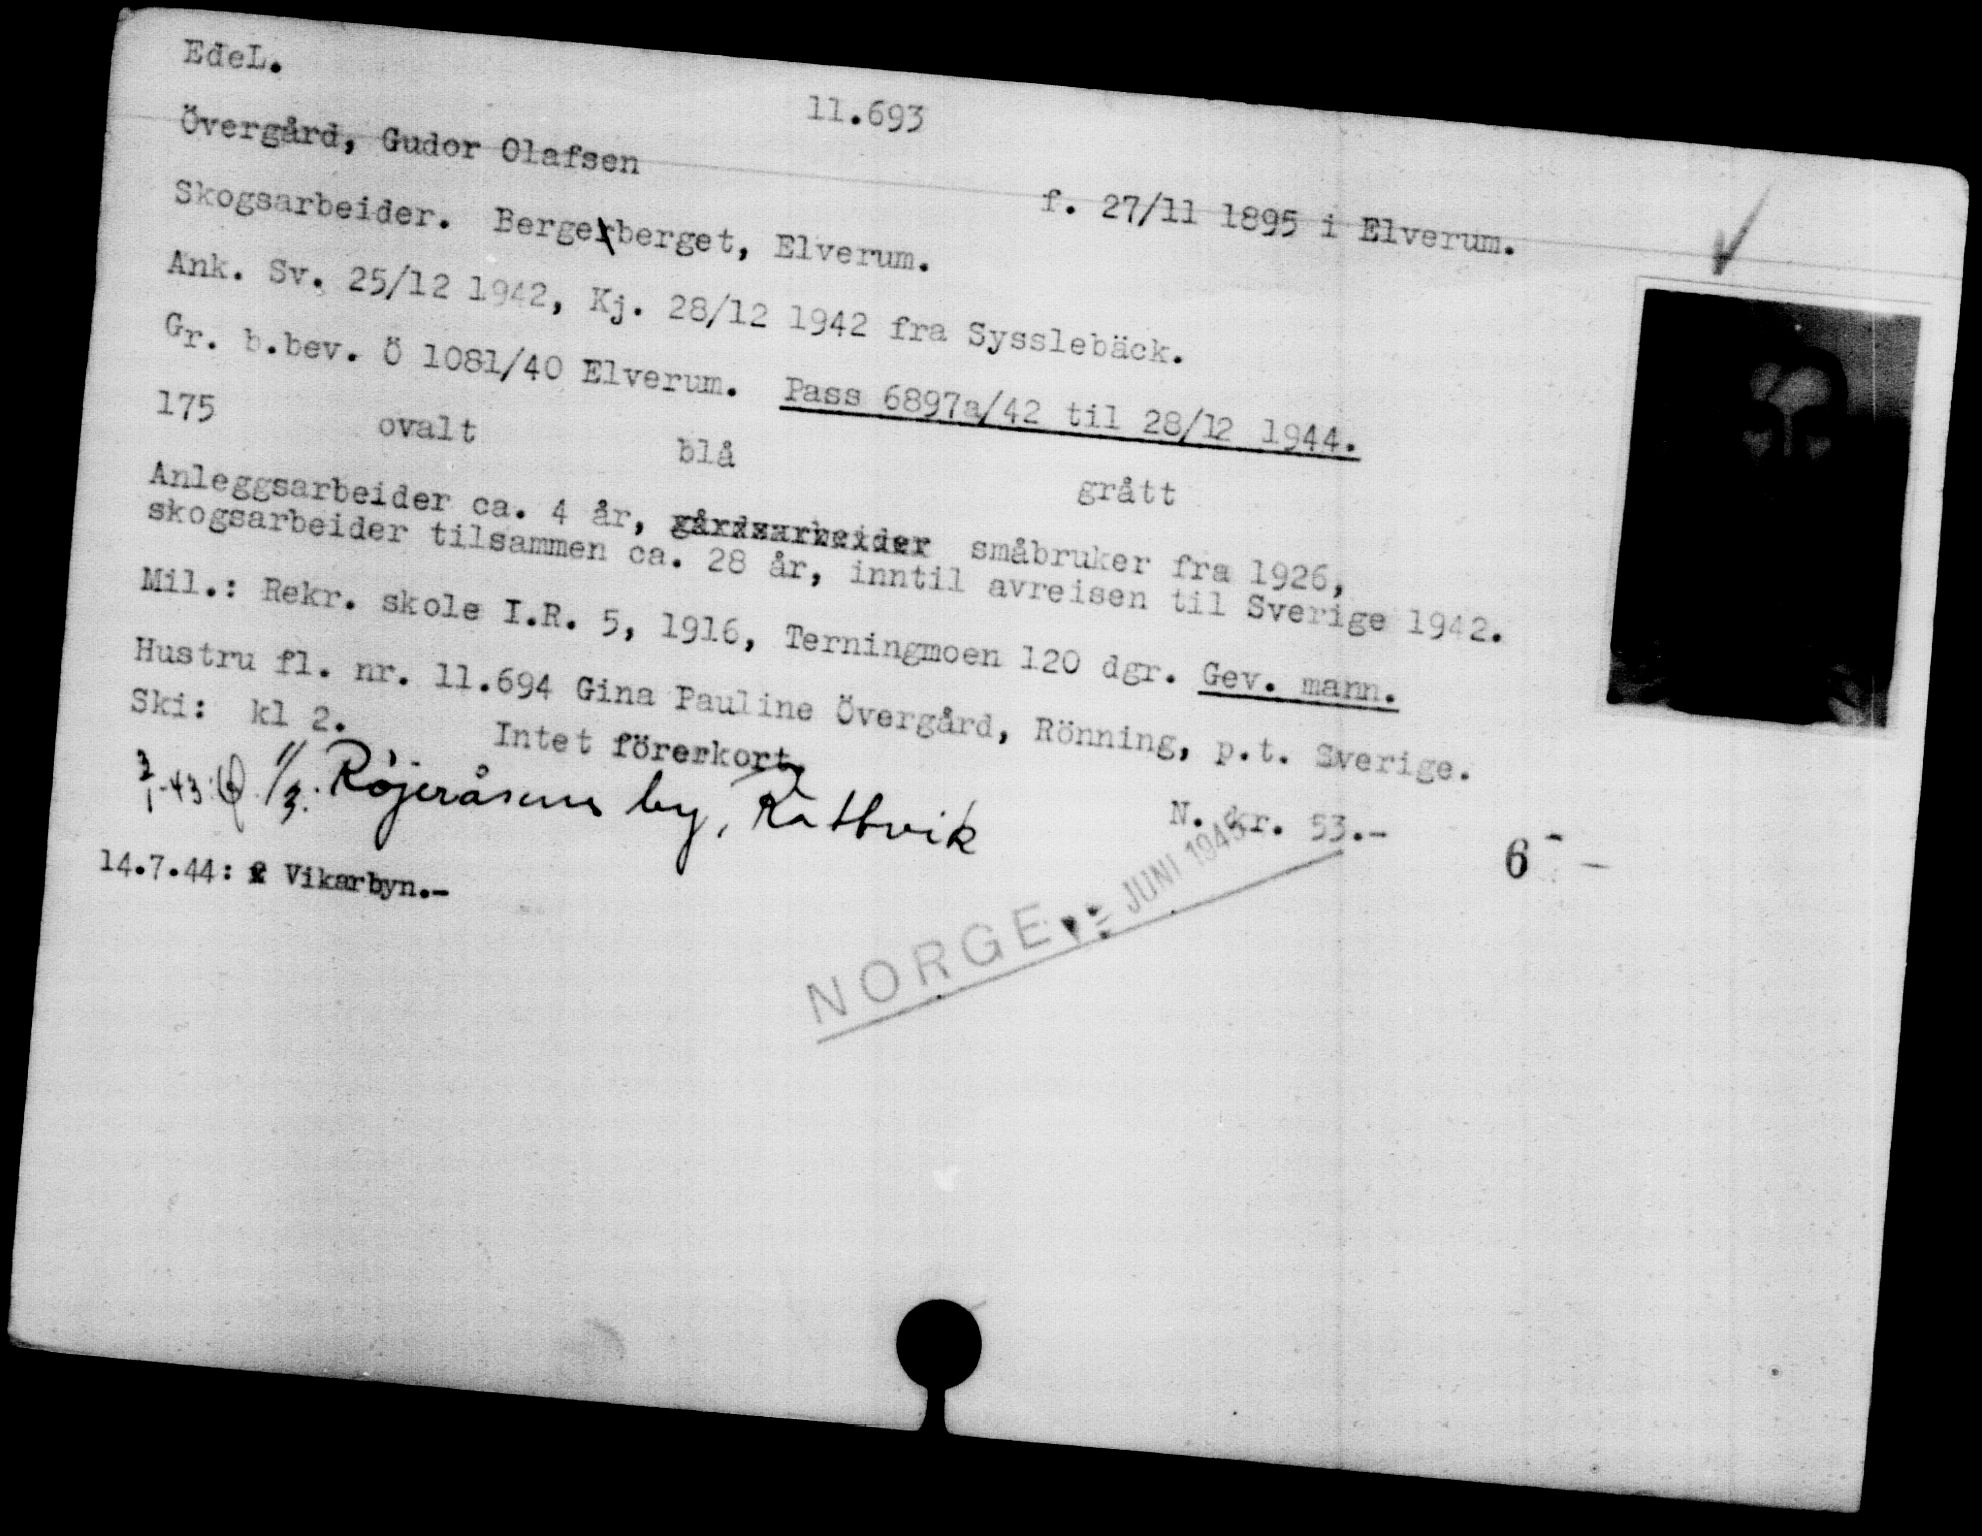 EdeL.
11.693
Övergård, Gudor Olafsen
f. 27/11 1895 i Elverum.
Skogsarbeider. Bergeberget, Elverum.
Ank. Sv. 25/12 1942, Kj. 28/12 1942 fra Sysslebäck.
Gr. b.bev. Ö 1081/40 Elverum. Pass 6897a/42 til 28/12 1944.
175 ovalt blå grått
Anleggsarbeider ca. 4 år, gårdsarbeider småbruker fra 1926,
skogsarbeider tilsammen ca. 28 år, inntil avreisen til Sverige 1942.
Mil.: Rekr. skole I.R. 5, 1916, Terningmoen 120 dgr. Gev. mann.
Hustru fl. nr. 11.694 Gina Pauline Övergård, Rönning, p.t. Sverige.
Ski: kl 2. Intet förerkort.
N. kr. 53.-
1/3. Røjeråsens by, Rattvik
6 -
14.7.44: Vikarbyn.-
NORGE JUNI 1945